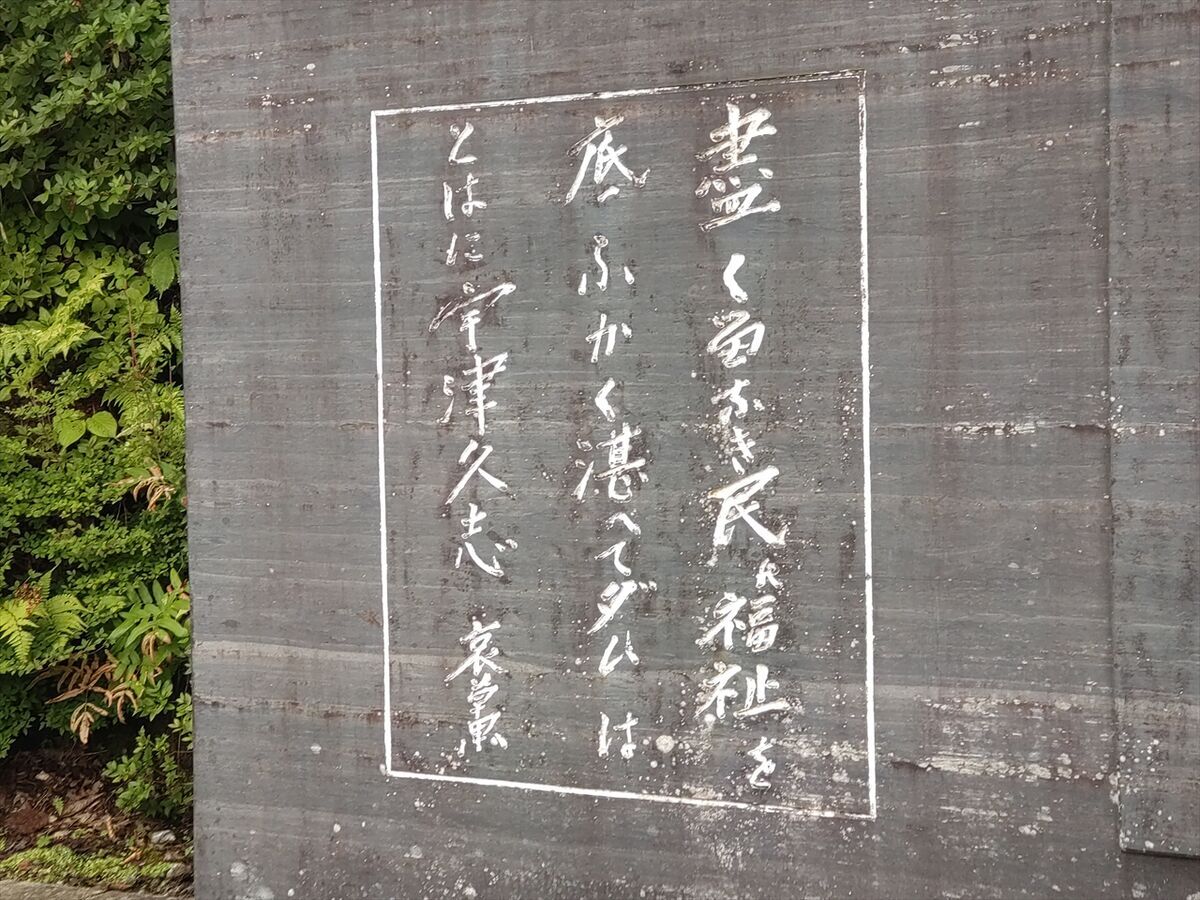 盡く留なき民の福祉を
底ふかく湛へてダムは
とはに宇津久志 哀草果